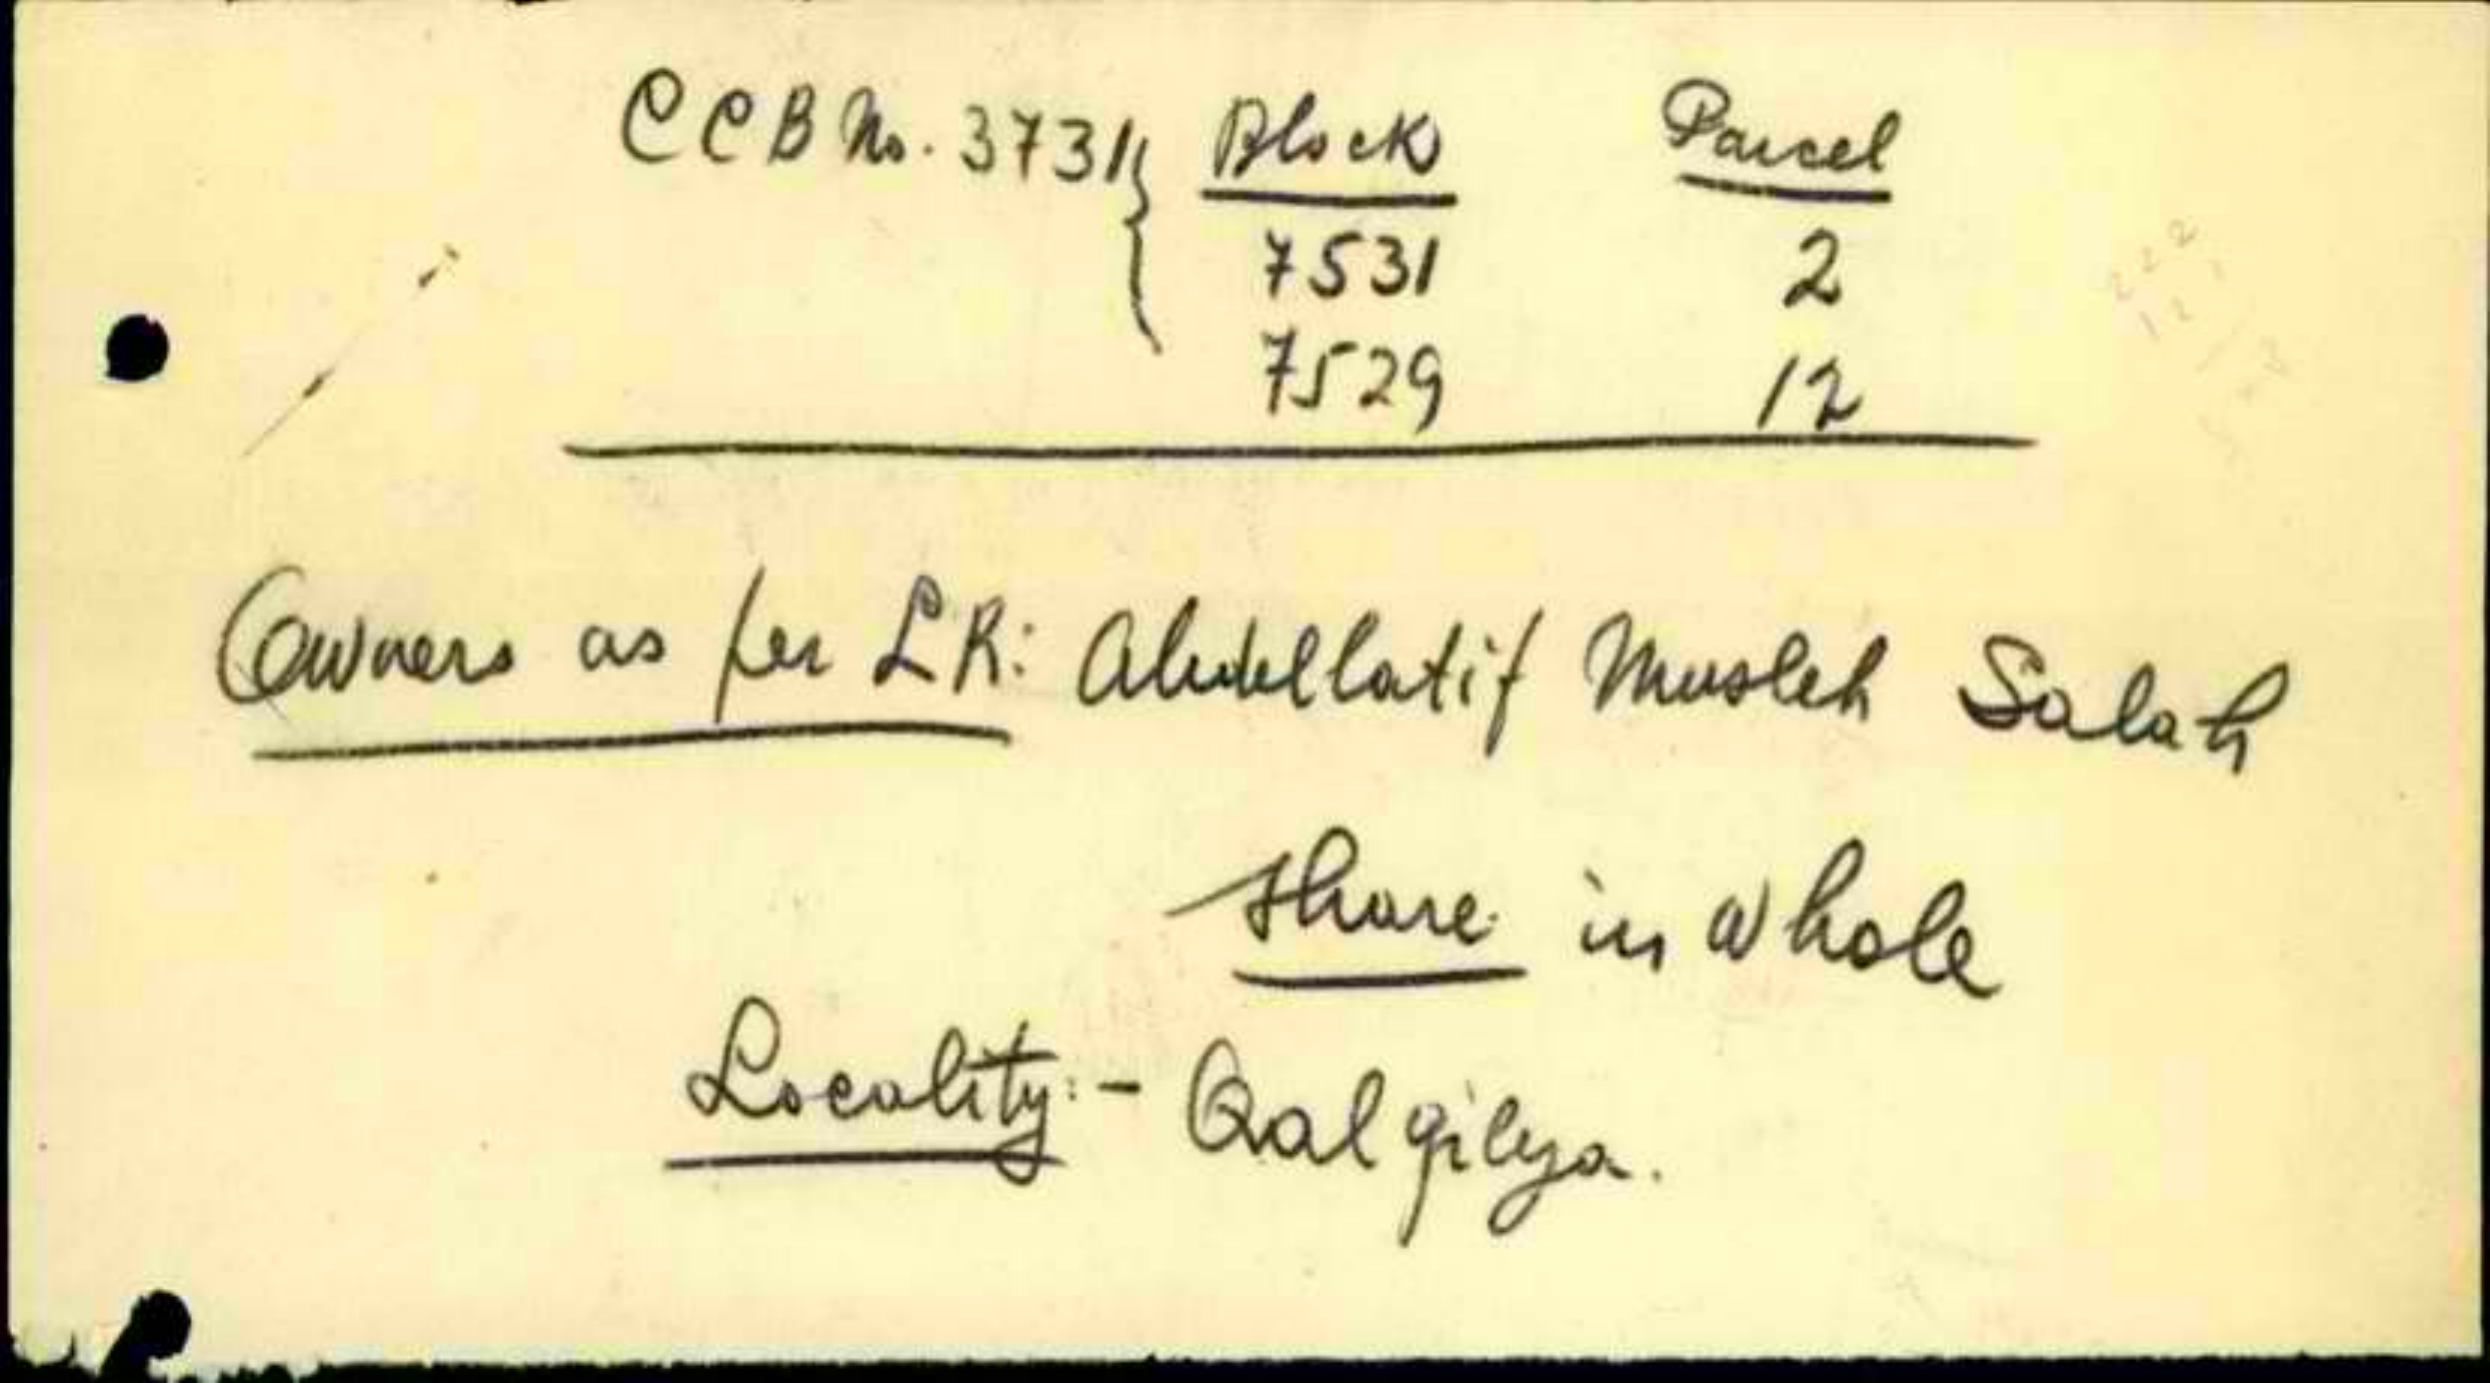 CCB No. 3731 { Block Parcel
7531 2
7529 12
Owners as per LR: Abdellatif Musleh Salah
Share in Whole
Locality:- Qalqilya.